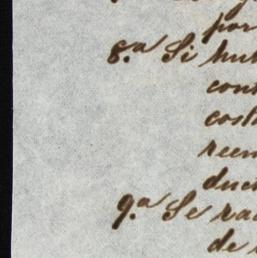 por
8.ª Si hub
con
cost
reem
duc
9.ª Se rac
de